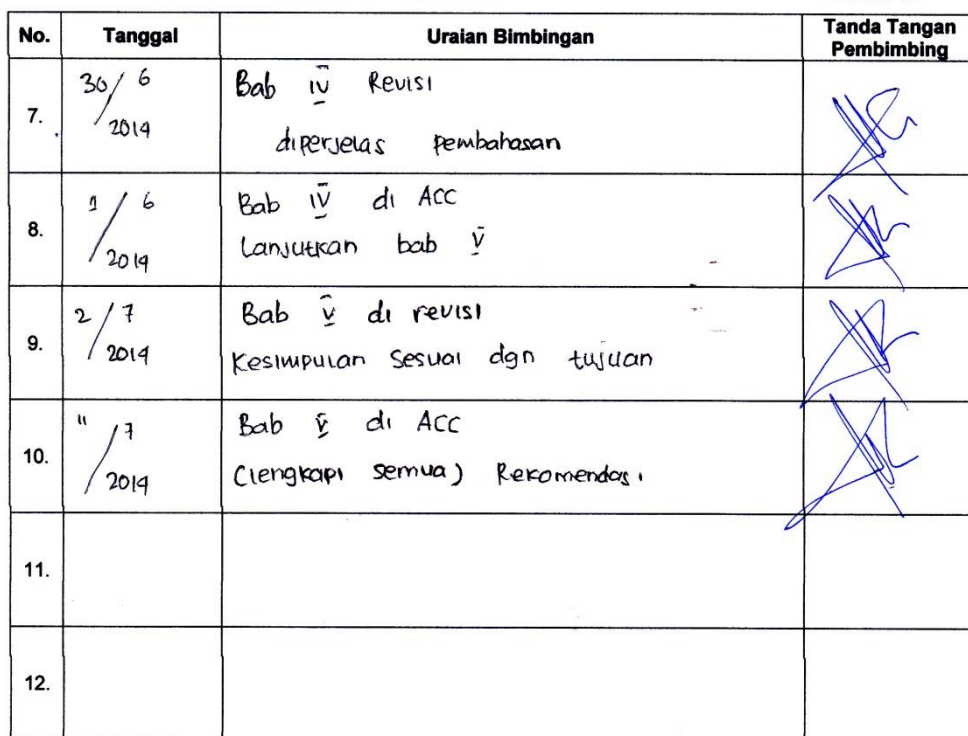 No. Tanggal Uraian Bimbingan Tanda Tangan
Pembimbing
7. 30/6 2014 Bab IV Revisi
diperjelas pembahasan
8. 1/6 2014 Bab IV di ACC
Lanjutkan bab V
9. 2/7 2014 Bab V di revisi
Kesimpulan Sesuai dgn tujuan
10. 11/7 2014 Bab V di ACC
(lengkapi semua) Rekomendasi
11.
12.